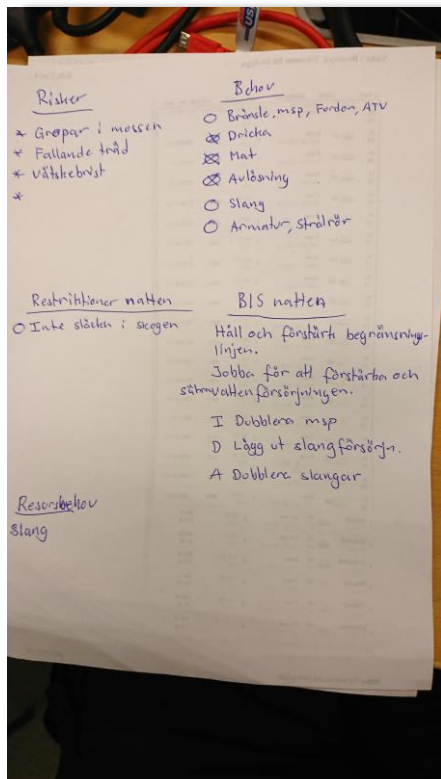 Risker
* Gropar i mossen
* Fallande träd
* Vätskebrist
*
Behov
○ Bränsle, msp, Fordon, ATV
⊗ Dricka
⊗ Mat
⊗ Avlösning
○ Slang
○ Armatur, Strålrör
Restriktioner natten
○ Inte släcka i skogen
BIS natten
Håll och förstärk begränsnings-
linjen.
Jobba för att förstärka och
säkra vattenförsörjningen.
I Dubblera msp
D Lägg ut slangförsörjn.
A Dubblera slangar
Resursbehov
Slang